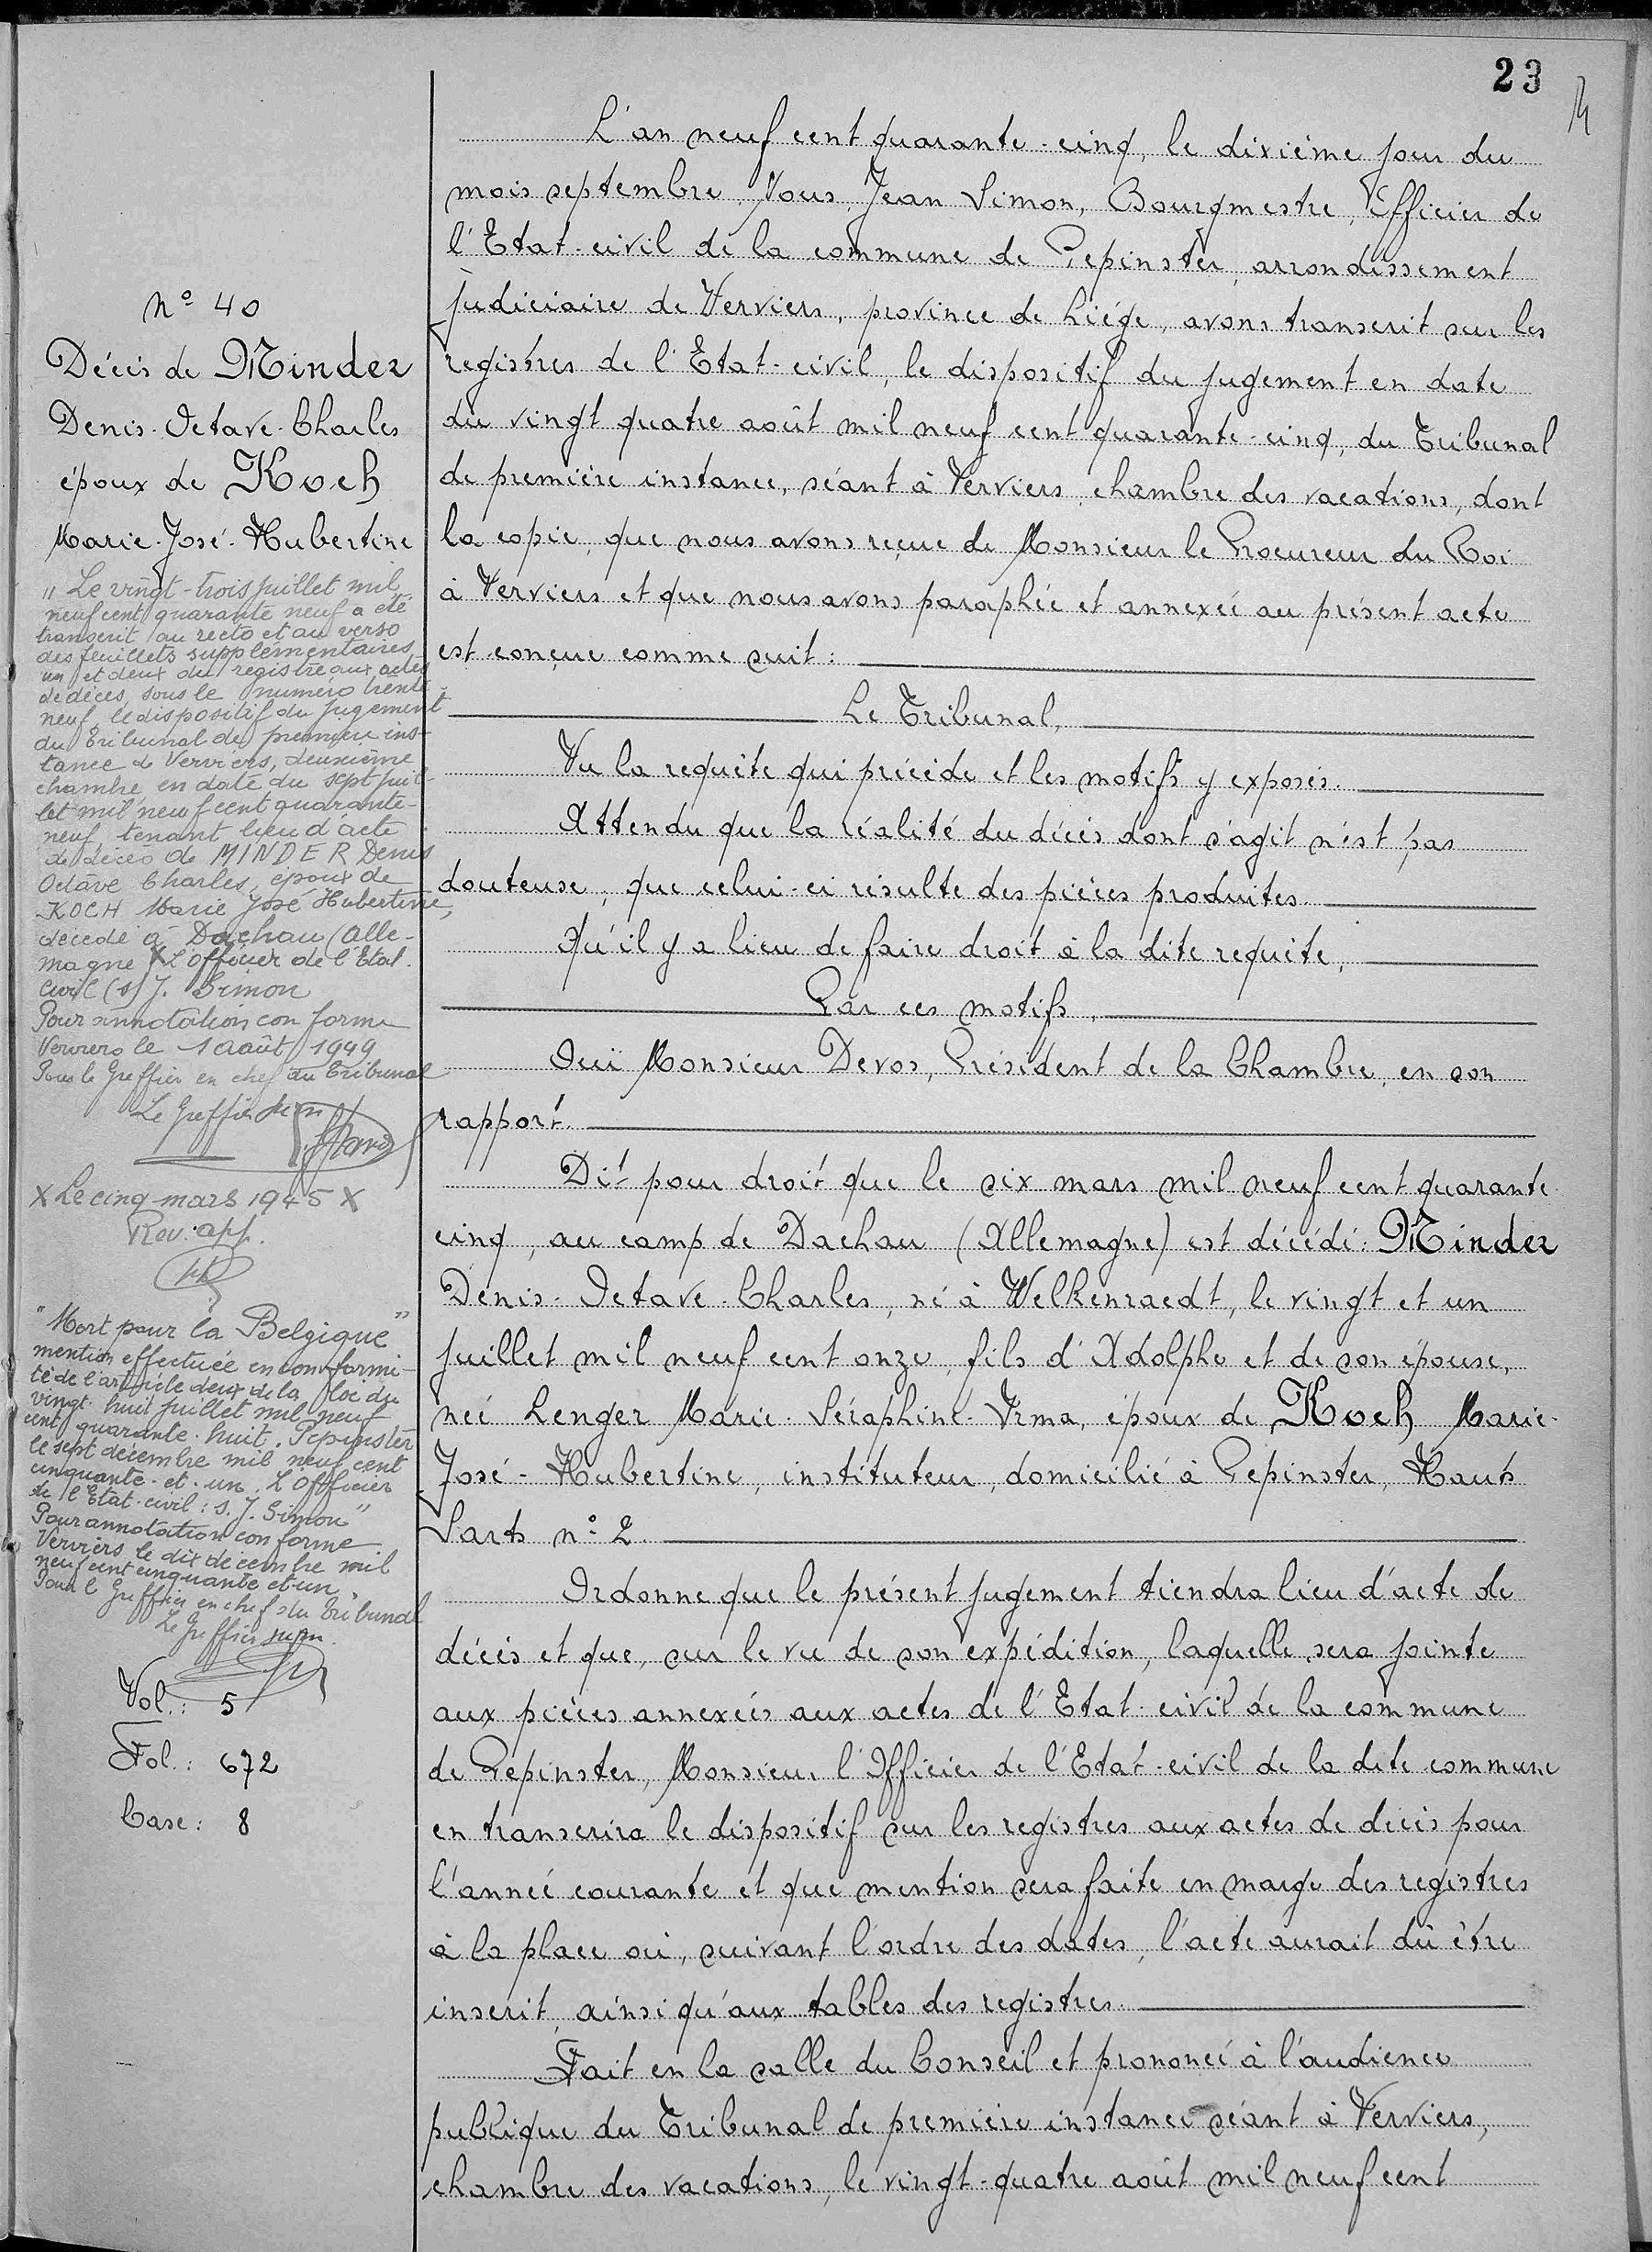 23
N° 40
Décès de Minder
Denis-Octave-Charles
époux de Koch
Marie-José-Hubertine
"Le vingt-trois juillet mil
neuf cent quarante neuf a été
transcrit au recto et au verso
des feuillets supplémentaires
un et deux du registre aux actes
de décès, sous le numéro trente
neuf, le dispositif du jugement
du Tribunal de première ins-
tance de Verviers, deuxième
chambre en date du sept juil-
let mil neuf cent quarante-
neuf, tenant lieu d'acte
de décès de MINDER Denis
Octave Charles, époux de
KOCH Marie José Hubertine,
décédé à Dachau (Alle-
magne X L'Officier de l'Etat.
Civil (s) J. Simon
Pour annotation conforme
Verviers le 1 août 1949
Pour le Greffier en chef du Tribunal
Le Greffier
X Le cinq mars 1945 X
Rev: app.
"Mort pour la Belgique"
mention effectuée en conformi-
té de l'article deux de la loi du
vingt-huit juillet mil neuf
cent quarante-huit. Pepinster
le sept décembre mil neuf cent
cinquante-et-un. L'Officier
de l'Etat-civil: s. J. Simon"
Pour annotation conforme
Verviers le dix décembre mil
neuf cent cinquante et un.
Pour le Greffier en chef du Tribunal
Le Greffier surn.
Vol.: 5
Fol.: 672
Case: 8
L'an neuf cent quarante-cinq, le dixième jour du
mois septembre, Nous, Jean Simon, Bourgmestre, Officier de
l'Etat-civil de la commune de Pepinster, arrondissement
judiciaire de Verviers, province de Liége, avons transcrit sur les
registres de l'Etat-civil, le dispositif du jugement en date
du vingt quatre août mil neuf cent quarante-cinq, du Tribunal
de première instance, séant à Verviers, chambre des vacations, dont
la copie, que nous avons reçue de Monsieur le Procureur du Roi
à Verviers et que nous avons paraphée et annexée au présent acte
est conçue comme suit:
Le Tribunal,
Vu la requête qui précède et les motifs y exposés.
Attendu que la réalité du décès dont s'agit n'est pas
douteuse; que celui-ci résulte des pièces produites.
Qu'il y a lieu de faire droit à la dite requête,
Par ces motifs,
Ouï Monsieur Devos, Président de la Chambre, en son
rapport.
Dit pour droit que le six mars mil neuf cent quarante
cinq, au camp de Dachau (Allemagne) est décédé: Minder
Denis-Octave-Charles, né à Welkenraedt, le vingt et un
juillet mil neuf cent onze, fils d'Adolphe et de son épouse,
née Lenger Marie-Séraphine-Irma, époux de Koch Marie-
José-Hubertine, instituteur, domicilié à Pepinster, Hauts
Sarts n° 2.
Ordonne que le présent jugement tiendra lieu d'acte de
décès et que, sur le vu de son expédition, laquelle sera jointe
aux pièces annexées aux actes de l'Etat-civil de la commune
de Pepinster, Monsieur l'Officier de l'Etat-civil de la dite commune
en transcrira le dispositif sur les registres aux actes de décès pour
l'année courante et que mention sera faite en marge des registres
à la place où, suivant l'ordre des dates, l'acte aurait dû être
inscrit, ainsi qu'aux tables des registres.
Fait en la salle du Conseil et prononcé à l'audience
publique du Tribunal de première instance séant à Verviers,
chambre des vacations, le vingt-quatre août mil neuf cent